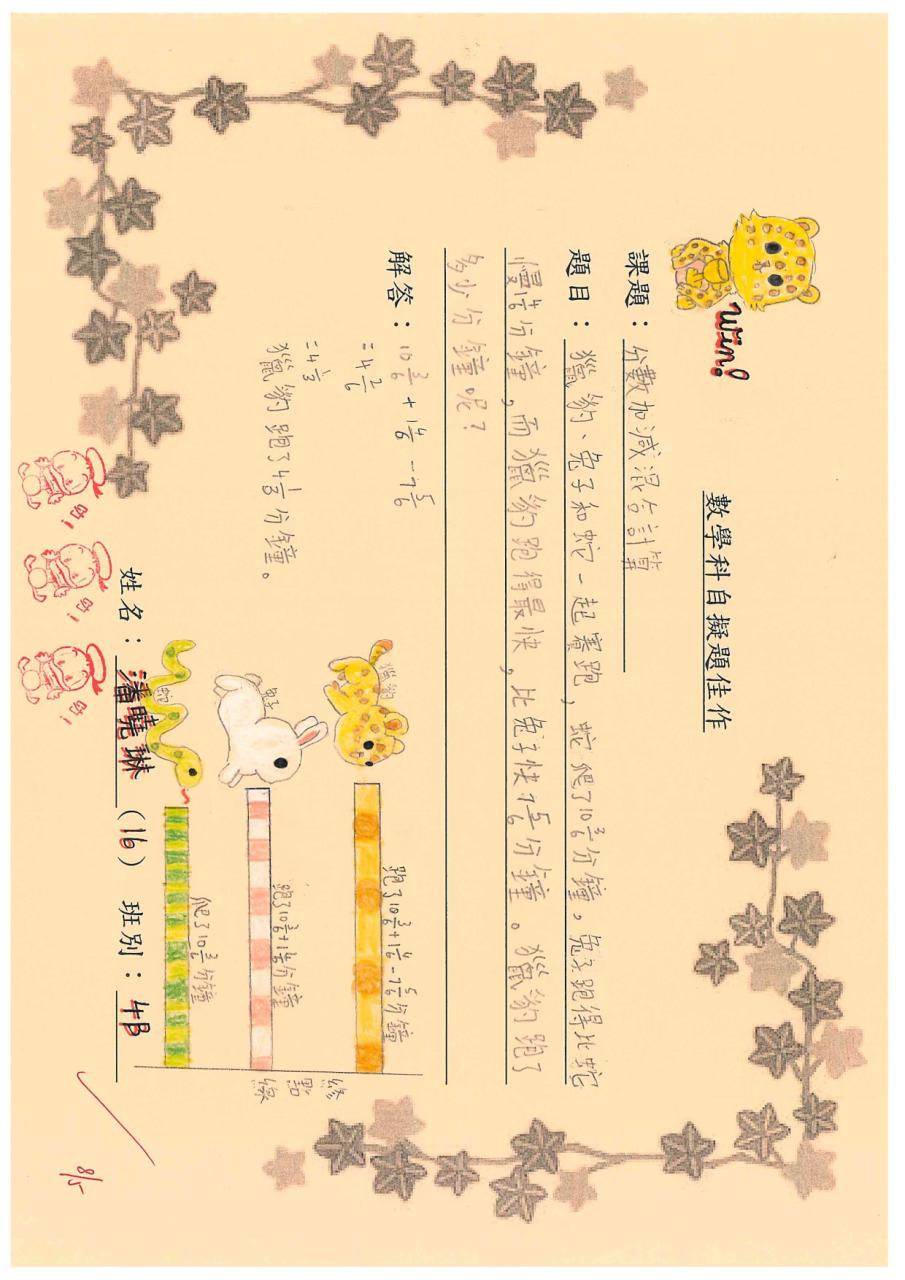 數學科自擬題佳作
win!
課題：分數加減混合計算
題目：獵豹、兔子和蛇一起賽跑，蛇爬了10 3/6分鐘。兔子跑得比蛇
慢1 4/6分鐘，而獵豹跑得最快，比兔子快7 5/6分鐘。獵豹跑了
多少分鐘呢？
解答：10 3/6 + 1 4/6 - 7 5/6
= 4 2/6
= 4 1/3
獵豹跑了4 1/3分鐘。
獵豹
跑了10 3/6 + 1 4/6 - 7 5/6分鐘
兔子
跑了10 3/6 + 1 4/6分鐘
蛇
爬了10 3/6分鐘
終點線
姓名：潘曉琳（16） 班別：4B
好！
好！
好！
8/5